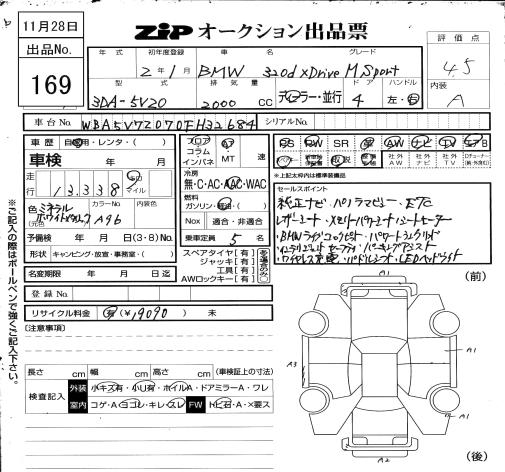 11月28日
出品No.
169
ZIP オークション出品票
評価点
4.5
内装
A
年式 初年度登録 車名 グレード
2年1月 BMW 320d xDrive M Sport
型式 排気量 ドア ハンドル
3DA-5V20 2000 CC ディーラー・並行 4 左・右
車台No. WBA5V72070FH32684 シリアルNo.
車歴 自家用・レンタ・( )
車検 年 月
走行 13,338 マイル
色 ミネラルホワイト カラーNo. A96 内装色
予備検 年 月 (3・8) No.
形状 キャンピング・放宣・事務室・( )
名変期限 年 月 日迄
登録No.
リサイクル料金 有 (¥19090) 未
フロア コラム インパネ MT 速
冷房 無・C・AC・AAC・WAC
燃料 ガソリン・軽油・( )
Nox 適合・非適合
乗車定員 5 名
スペアタイヤ[有]
ジャッキ[有]
工具[有]
AWロックキー[有]
PS PW SR 革 AW ナビ TV エアB
取説 社外AW 社外ナビ 社外TV
上段〇印は標準装備品
セールスポイント
純正ナビ・パノラマビュー・ETC
レザーシート・メモリーパワーシート・シートヒーター
・BMWライブコックピット・パワートランクリッド
・パーキングアシスト
・ワイヤレス充電・パドルシフト・LEDヘッドライト
[注意事項]
長さ cm 幅 cm 高さ cm (車検証上の寸法)
検査記入 外装 小キズ有・小凹有・ホイルA・ドアミラーA・ワレ
室内 コゲA・ヨゴレ・キレ・スレ FW トビ石・A・X要ス
◇ご記入の際はボールペンで強くご記入下さい。
(前)
A1
A3
A1
A1
A2
(後)